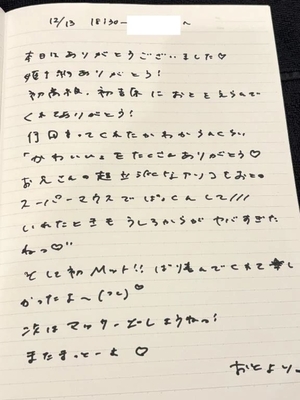 12/13 18:30〜 〜
本日はありがとうございました♡
頂き物ありがとう!
初高校、初主体におとをえらんで
くれてありがとう!
何回きてくれたかわからんくらい
「かわいい」をたくさんありがとう♡
お兄さんの超立派なチンコをおとの
スーパーマウスでぱっくんして///
いれたときもうしろからがヤバすぎた
ねっ♡
そして初Mット!! ばり喜んでくれて
かったよ〜
次はマッターどしようねっ!
またまっとーよ ♡
おとより